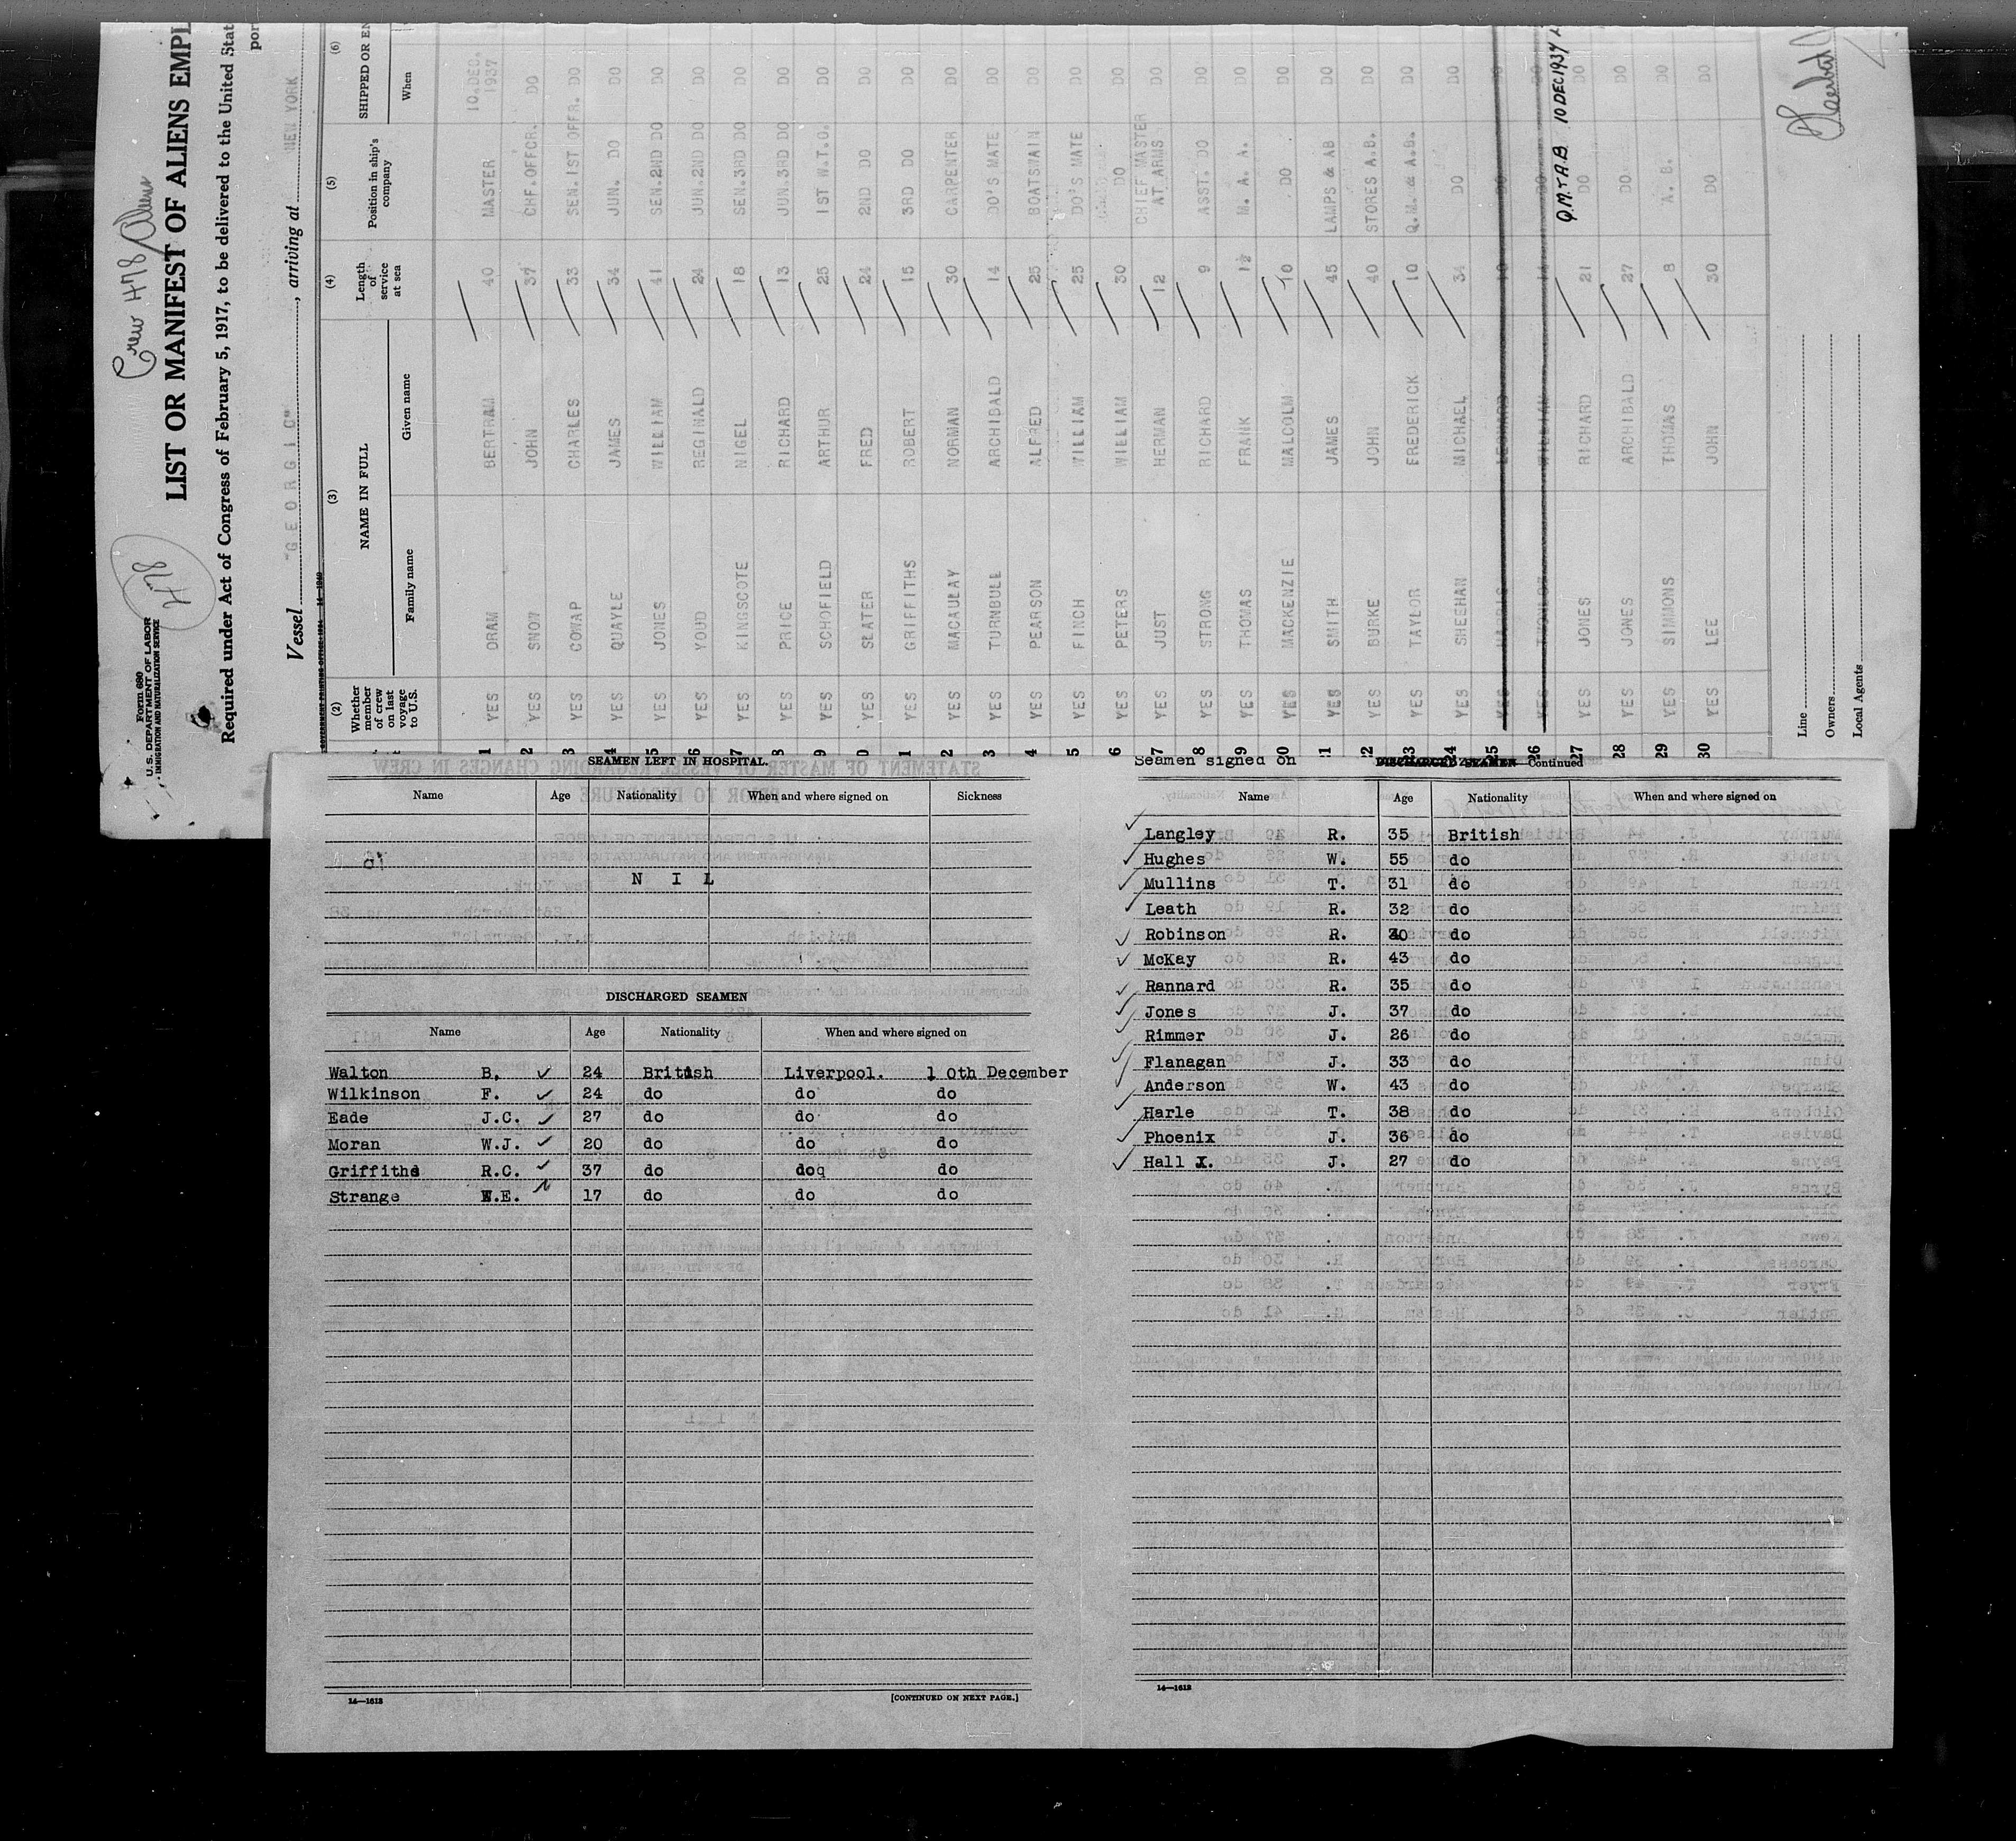 Form 680
U. S. DEPARTMENT OF LABOR
IMMIGRATION AND NATURALIZATION SERVICE
478
Crew 478 Aliens
LIST OR MANIFEST OF ALIENS EMPL
Required under Act of Congress of February 5, 1917, to be delivered to the United Stat
por
Vessel "GEORGIC", arriving at NEW YORK
(2) (3) (4) (5) (6)
Whether member of crew on last voyage to U.S. NAME IN FULL Length of service at sea Position in ship's company SHIPPED OR EN
Family name Given name When
1 YES ORAM BERTRAM 40 MASTER 10.DEC. 1937
2 YES SNOW JOHN 37 CHF.OFFCR. DO
3 YES COWAP CHARLES 33 SEN.1ST OFFR. DO
4 YES QUAYLE JAMES 34 JUN. DO DO
5 YES JONES WILLIAM 41 SEN.2ND DO DO
6 YES YOUD REGINALD 24 JUN.2ND DO DO
7 YES KINGSCOTE NIGEL 18 SEN.3RD DO DO
8 YES PRICE RICHARD 13 JUN.3RD DO DO
9 YES SCHOFIELD ARTHUR 25 1ST W.T.O. DO
0 YES SLATER FRED 24 2ND DO DO
1 YES GRIFFITHS ROBERT 15 3RD DO DO
2 YES MACAULAY NORMAN 30 CARPENTER DO
3 YES TURNBULL ARCHIBALD 14 DO'S MATE DO
4 YES PEARSON ALFRED 25 BOATSWAIN DO
5 YES FINCH WILLIAM 25 DO'S MATE DO
6 YES PETERS WILLIAM 30 DO DO
7 YES JUST HERMAN 12 CHIEF MASTER AT ARMS DO
8 YES STRONG RICHARD 9 ASST. DO DO
19 YES THOMAS FRANK M. A. A. DO
20 YES MACKENZIE MALCOLM 10 DO DO
21 YES SMITH JAMES 45 LAMPS & AB DO
22 YES BURKE JOHN 40 STORES A.B. DO
23 YES TAYLOR FREDERICK 10 Q.M. & A.B. DO
24 YES SHEEHAN MICHAEL 34 DO DO
25 YES HARRIS LEONARD DO DO
26 YES WILLIAM DO DO
Q.M. & A.B. 10 DEC 1937
27 YES JONES RICHARD 21 DO DO
28 YES JONES ARCHIBALD 27 DO DO
29 YES SIMMONS THOMAS 8 A. B. DO
30 YES LEE JOHN 30 DO DO
Line
Owners
Local Agents
SEAMEN LEFT IN HOSPITAL.
Name Age Nationality When and where signed on Sickness
N I L
DISCHARGED SEAMEN
Name Age Nationality When and where signed on
Walton B. 24 British Liverpool. 1 0th December
Wilkinson F. 24 do do do
Eade J.C. 27 do do do
Moran W.J. 20 do do do
Griffiths R.C. 37 do doq do
Strange E. 17 do do do
14—1618
[CONTINUED ON NEXT PAGE.]
Seamen signed on DISCHARGED SEAMEN—Continued
Name Age Nationality When and where signed on
Langley R. 35 British
Hughes W. 55 do
Mullins T. 31 do
Leath R. 32 do
Robinson R. do
McKay R. 43 do
Rannard R. 35 do
Jones J. 37 do
Rimmer J. 26 do
Flanagan J. 33 do
Anderson W. 43 do
Harle T. 38 do
Phoenix J. 36 do
Hall J. 27 do
14—1618